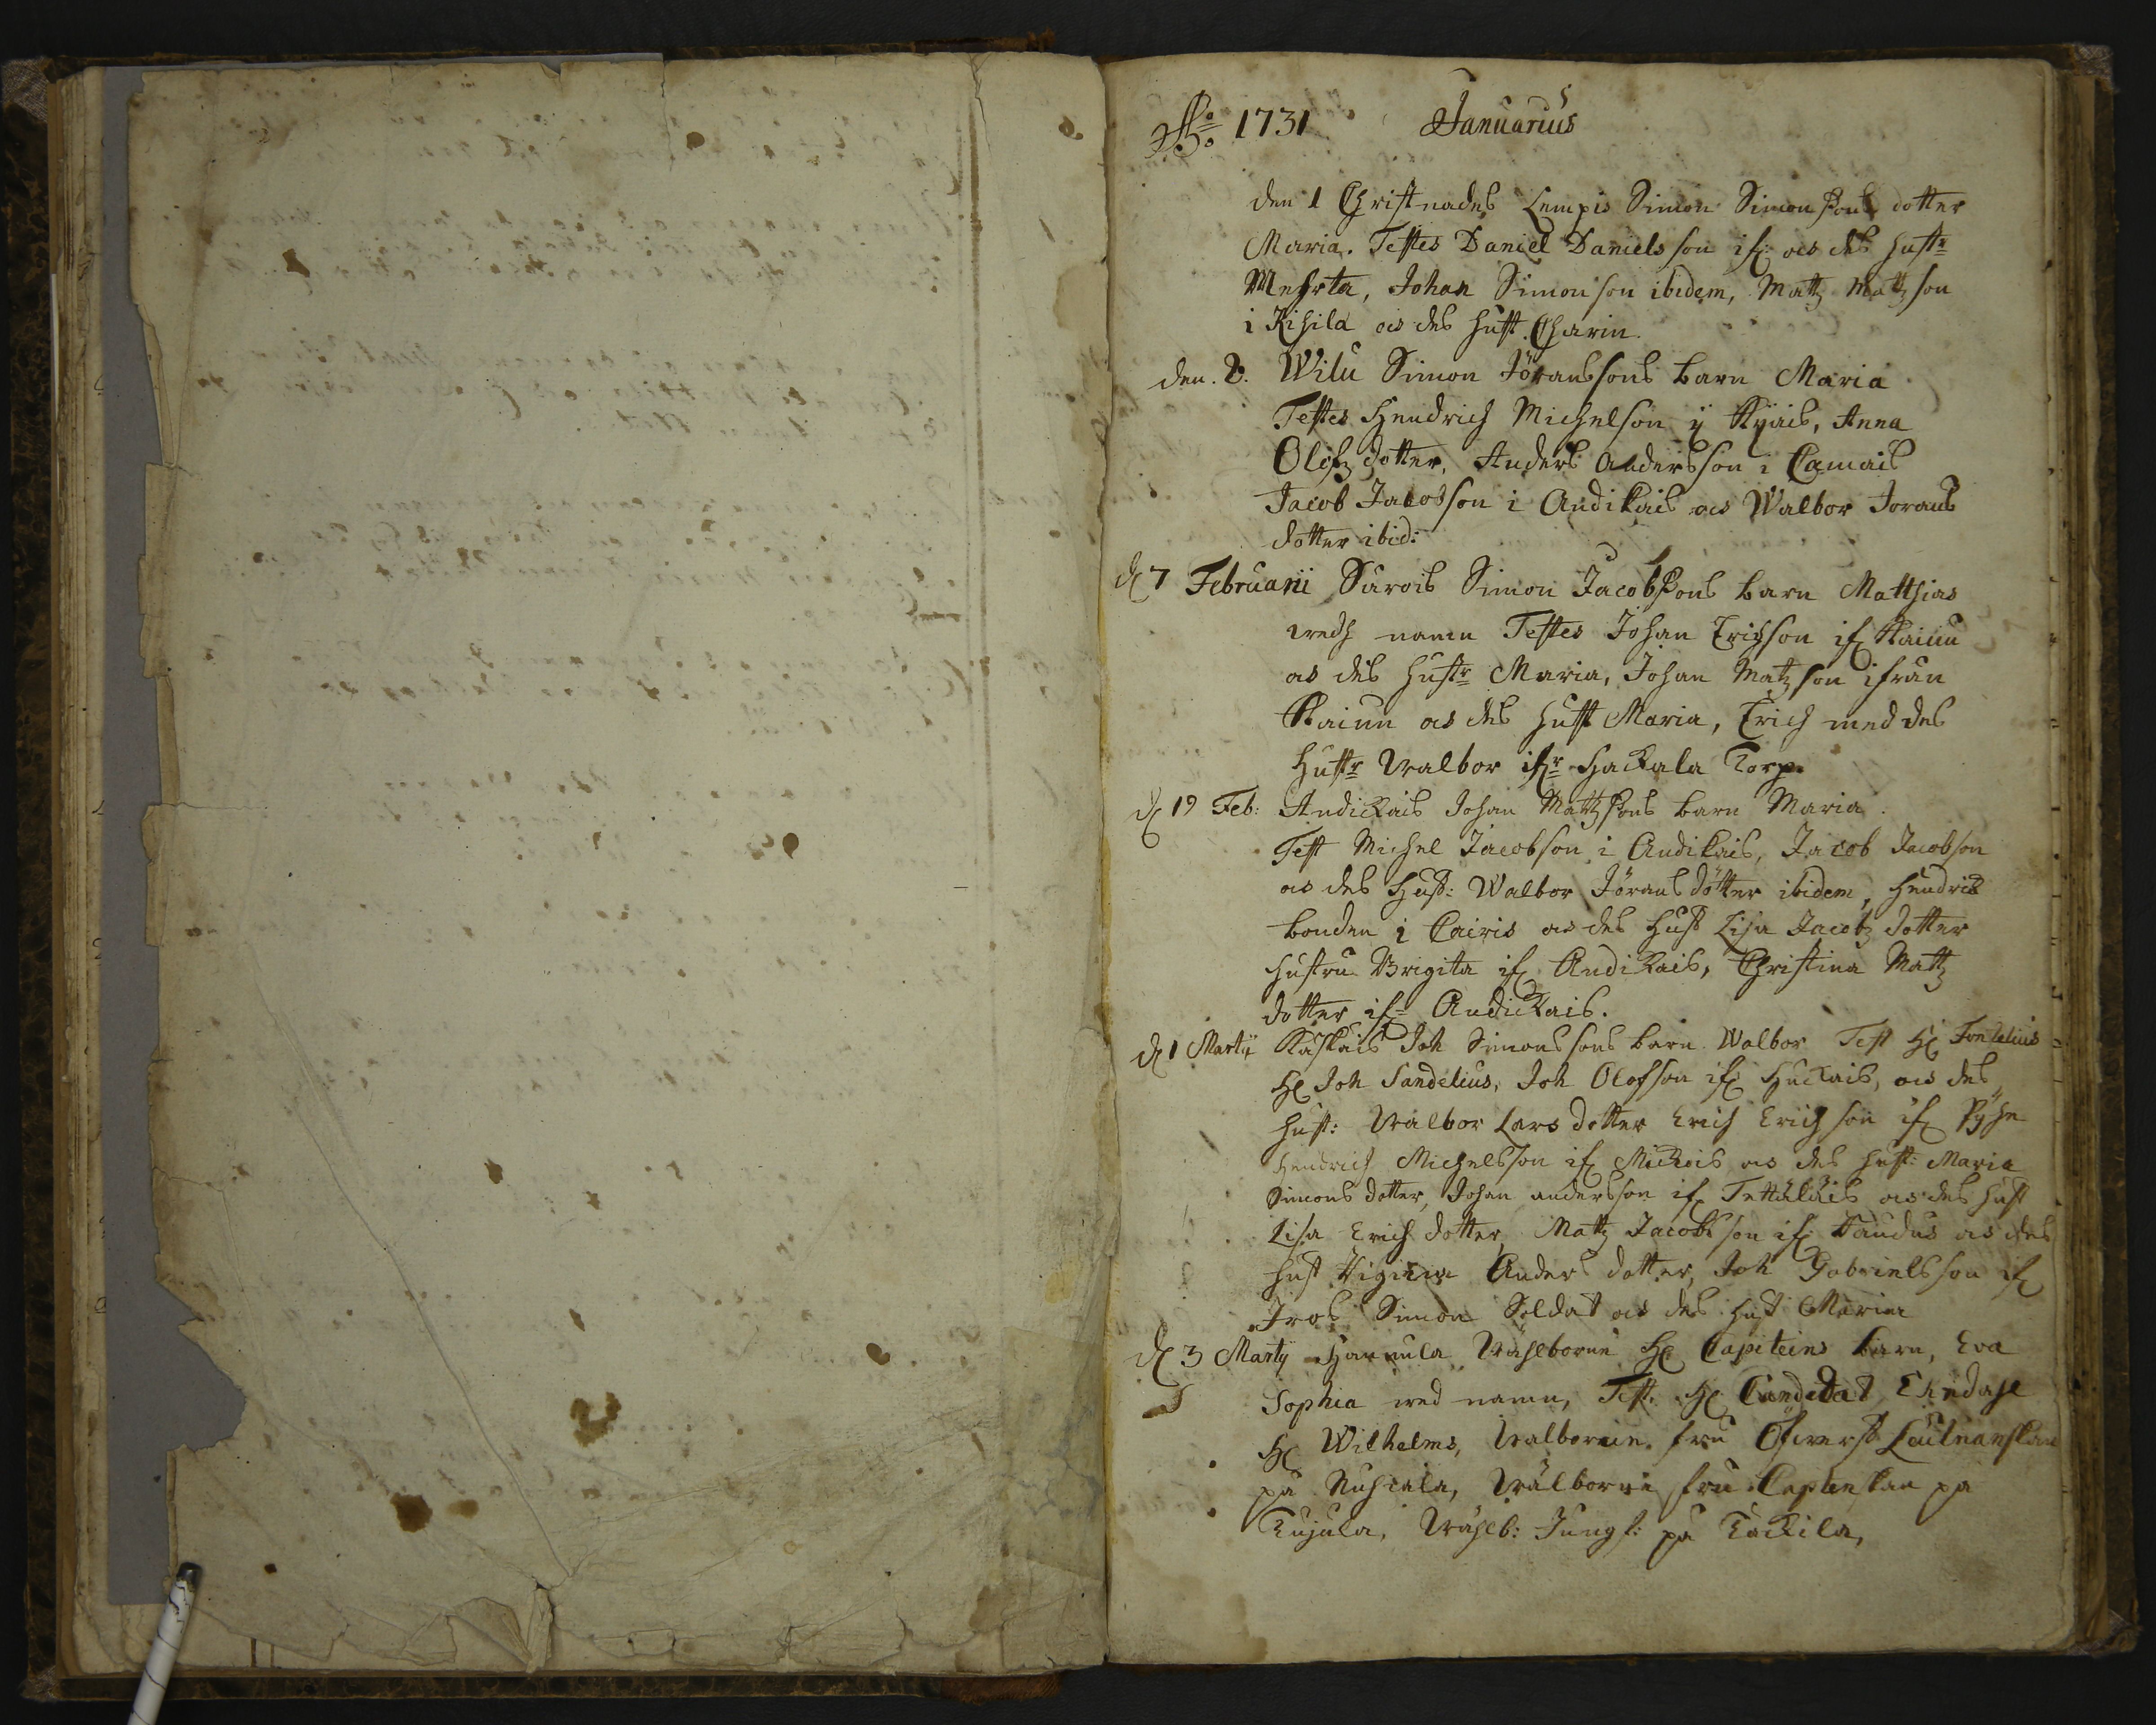 Aō 1731 Januarius
den 1 Christnades Lempis Simon Simonsons dotter
Maria. Testes Daniel Danielsson if: os des hustr
Mehrta, Johan Simonson ibidem, Matz Matzson
i Kihila os des hust Charin.
den. 2. Wilu Simon Jöranssons barn Maria
Testes Hendrich Michelson ÿ, Anna
Olofz dotter, Anders Andersson i Camais
Jacob Jacobson i Andikais os Walbor Jorans
dotter ibid:
d 7 Februarii Surois Simon Jacobsons barn Matthias
wedh namn Testes Johan Erichson if Kaiuu
os des hustr Maria, Johan Matzson ifrån
Kaiuu os des hust Maria, Erich med des
hustr Walbor ifr Hackala Torp.
d 19 Feb: Andickais Johan Mattzsons barn Maria.
Test Michel Jacobson i Andikais, Jacob Jacobson
os des Hust: Walbor Jöransdotter ibidem, Hendrik
bonden i Cairis os des hust Lisa Jacobz dotter
hustru Brigita if Andikais, Christina Mattz
dotter if Andickais.
d 1 Martii Kaskais Joh Simonssons barn Walbor Test H Fonselius
H Joh Sandelius, Joh Olofson if Huckais, os des
hust: Walbor Lars dotter Erich Erichson if Pyhe
Hendrich Michelsson if Mickois os des hust: Maria
Simons dotter, Johan andersson if Tettälais os des hust
Lisa Erichdotter, Matz Jacobsson if Kaudus os des
hust Anders dotter, Joh Gabrielsson if
Jrois Simon Soldat os des hust Maria
d 3 Martij Hannula Wählborne H Capiteins barn, Eva
Sophia wed namn, Test: H Candidat Ekedahl
H Wilhelms, Walborne fru Öfwerst Leutnanskan
på Nuhiala, Wälborne fru Captenskan på
Kujula, Wählb: Jungf: på Kackila,